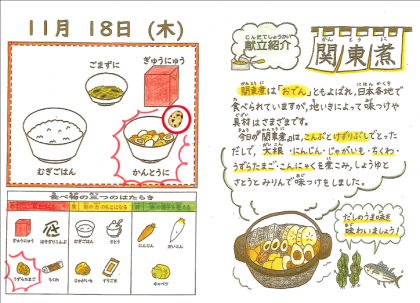 11月 18日 (木)
ごまずに
ぎゅうにゅう
むぎごはん
かんとうに
食べ物の三つのはたらき
ぎゅうにゅう
むぎごはん
さとう
にんじん
だいこん
うずらたまご
ちくわ
じゃがいも
すりごま
キャベツ
こんだてしょうかい
献立紹介
かんとうに
関東煮
関東煮は「おでん」ともよばれ、日本各地で
食べられていますが、地いきによって味つけや
具材はさまざまです。
今日の「関東煮」は、こんぶとけずりぶしでとった
だしで、大根・にんじん・じゃがいも・ちくわ・
うずらたまご・こんにゃくを煮こみ、しょうゆと
さとうとみりんで味つけをしました。
だしのうま味を
味わいましょう!